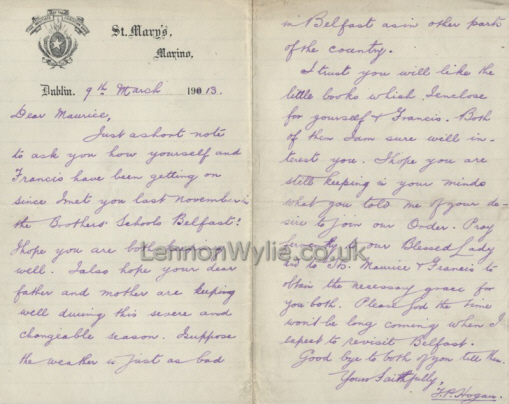 St. Mary's,
Marino,
Dublin. 9th March 190 13.
Dear Maurice,
Just a short note
to ask you how yourself and
Francis have been getting on
since I met you last November in
the Brothers' Schools Belfast?
I hope you are both
well. I also hope your dear
father and mother are keeping
well during this severe and
changeable season. I suppose
the weather is just as bad
in Belfast as in other parts
of the country.
I trust you will like the
little books which I enclose
for yourself & Francis. Both
of them I am sure will in-
terest you. I hope you are
still keeping in your minds
what you told me of your de-
sire to join our Order. Pray
to our Blessed Lady
to Sts. Maurice & Francis to
obtain the necessary grace for
you both. Please God the time
won't be long coming when I
expect to revisit Belfast.
Good bye to both of you till then.
Yours faithfully,
J.P. Hogan.
LennonWylie.co.uk